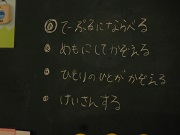 ◎てーぶるにならべる
•めもにしてかぞえる
•ひとりのひとが かぞえる
•けいさんする